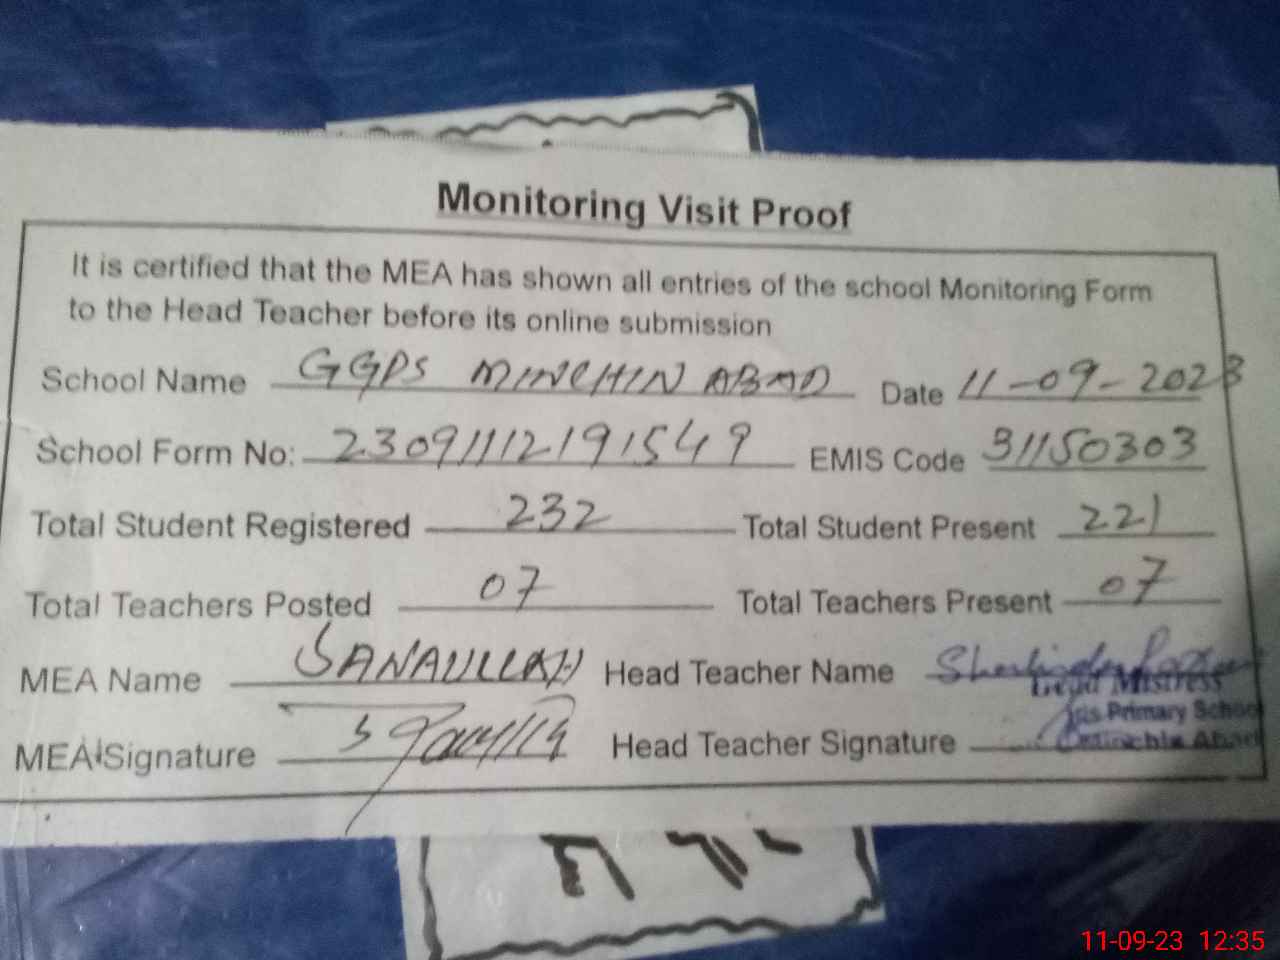 Monitoring Visit Proof
It is certified that the MEA has shown all entries of the school Monitoring Form
to the Head Teacher before its online submission
School Name GGPS MINCHIN ABAD Date 11-09-2023
School Form No: 23091112191549 EMIS Code 31150303
Total Student Registered 232 Total Student Present 221
Total Teachers Posted 07 Total Teachers Present 07
MEA Name SANAULLAH Head Teacher Name
Head Mistress
Primary School
MEA Signature Head Teacher Signature
11-09-23 12:35